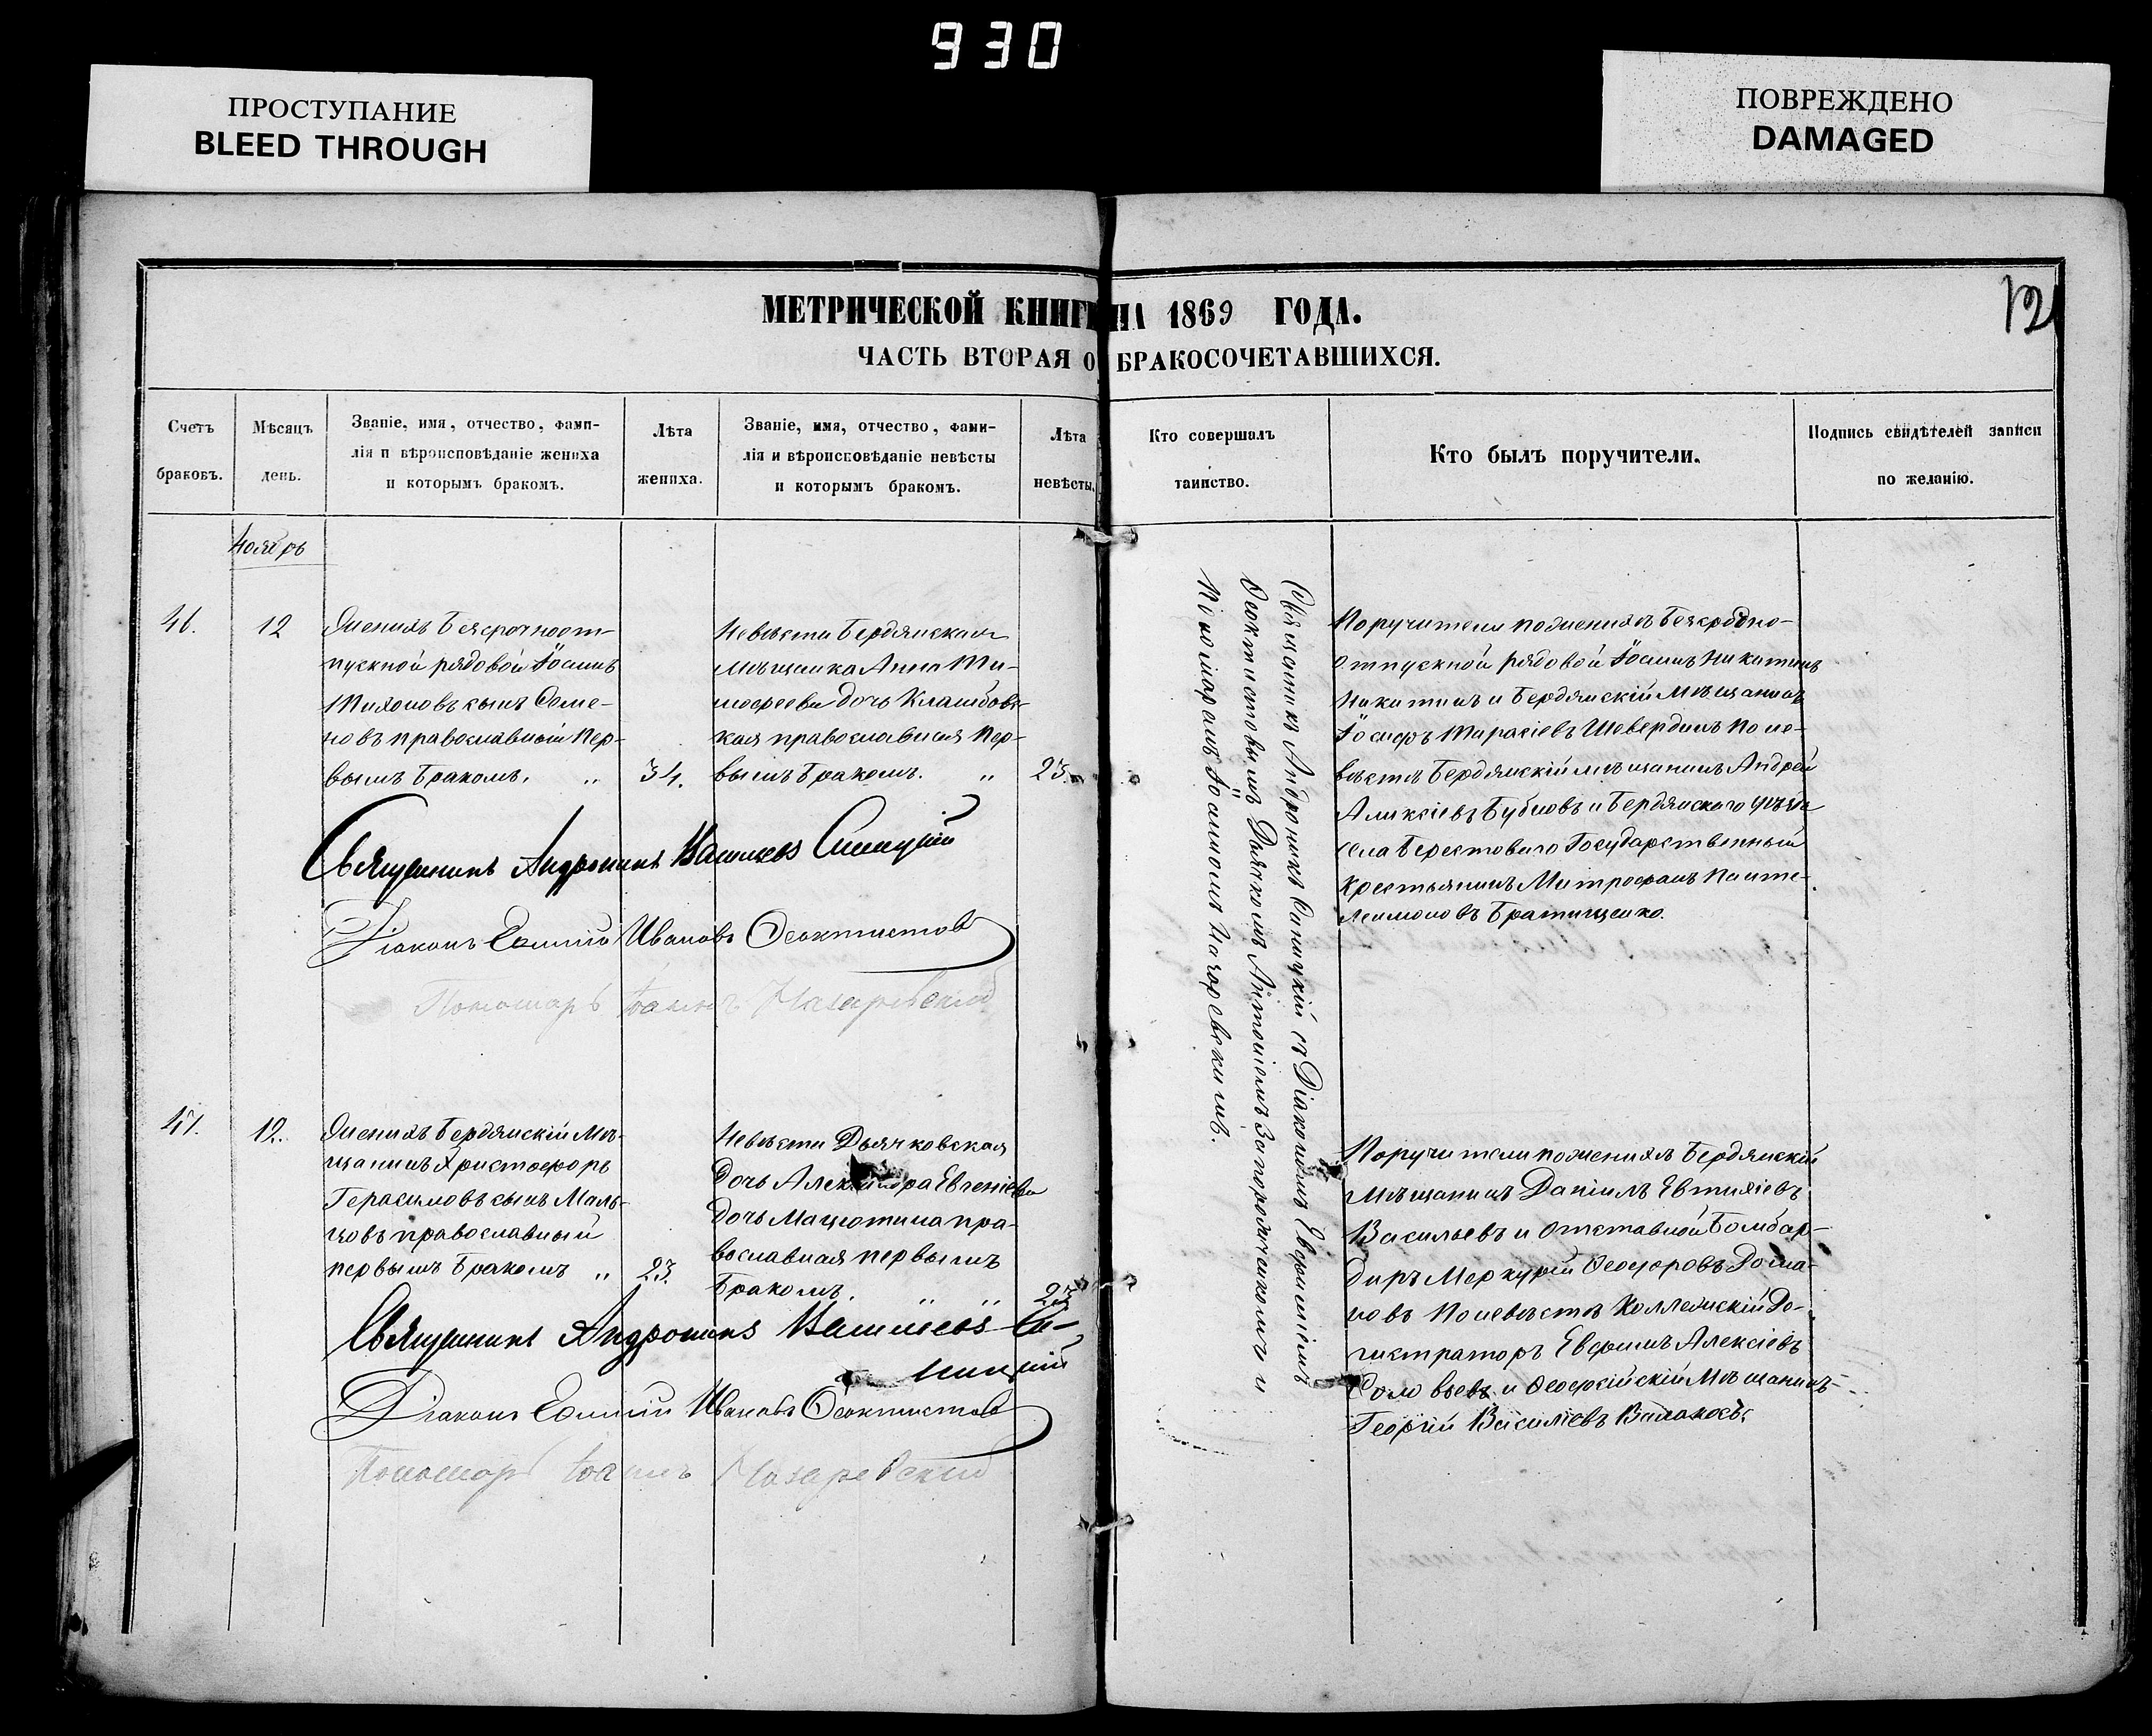 930
ПРОСТУПАНИЕ
BLEED THROUGH
ПОВРЕЖДЕНО
DAMAGED
12
МЕТРИЧЕСКОЙ КНИГИ НА 1869 ГОДА.
ЧАСТЬ ВТОРАЯ О БРАКОСОЧЕТАВШИХСЯ.
Счетъ
браковъ.
Мѣсяцъ
день.
Званіе, имя, отчество, фами-
лія и вѣроисповѣданіе жениха
и которымъ бракомъ.
Лѣта
жениха.
Званіе, имя, отчество, фами-
лія и вѣроисповѣданіе невѣсты
и которымъ бракомъ.
Лѣта
невѣсты.
Кто совершалъ
таинство.
Кто былъ поручители.
Подпись свидѣтелей записи
по желанію.
Ноябрь
46.
12
Женихъ Безсрочноот-
пускной рядовой Іоаннъ
Тихоновъ сынъ Семе-
новъ православный пер-
вымъ бракомъ. „
34.
Невѣста Бердянская
мѣщанка Анна Ти-
мофеева дочь
кая православная пер-
вымъ бракомъ. „
23.
Священникъ Андроникъ Синицкій съ Діакономъ Евфиміемъ
Феоктистовымъ Дьячкомъ Антоніемъ Запорожченкомъ и
Пономаремъ Іоанномъ Назаревскимъ.
Поручители по женихѣ Безсрочно-
отпускной рядовой Іоаннъ Никитинъ
Никитинъ и Бердянскій мѣщанинъ
Іосифъ Тарасіевъ Шевердинъ по не-
вѣстѣ Бердянскій мѣщанинъ Андрей
Алексіевъ Бубновъ и Бердянскаго уѣзда
села Берестоваго Государственный
крестьянинъ Митрофанъ Панте-
леимоновъ Братищенко.
Священникъ Андроникъ Синицкій
Діаконъ Евфимій Ивановъ Феоктистовъ
Пономарь Іоаннъ Назаревскій
47.
12.
Женихъ Бердянскій мѣ-
щанинъ Христофоръ
Герасимовъ сынъ Маль-
цовъ православный
первымъ бракомъ „
23.
Невѣста Дьячковская
дочь Александра Евгеніева
дочь Мацютина пра-
вославная первымъ
бракомъ. „ „
23
Поручители по женихѣ Бердянскій
мѣщанинъ Даніилъ Евтихіевъ
Васильевъ и отставной Бомбар-
диръ Меркурій Феодоровъ Рома-
новъ по невѣстѣ Коллежскій Ре-
гистраторъ Евфимъ Алексіевъ
Соловьевъ и Феодосійскій мѣщанинъ
Георгій Василіевъ
Священникъ Андроникъ Си-
ницкій
Діаконъ Евфимій Ивановъ Феоктистовъ
Пономарь Іоаннъ Назаревскій